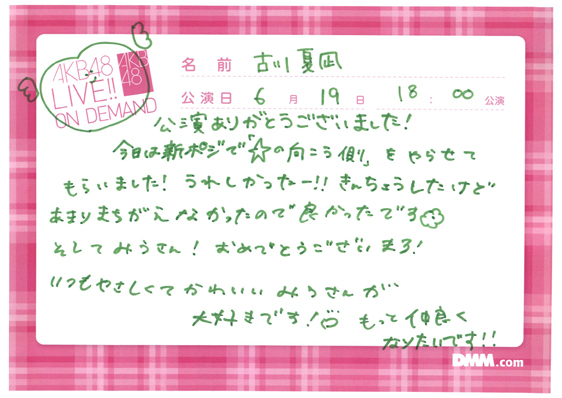 AKB48
LIVE!!
ON DEMAND
AKB
48
名前 古川夏凪
公演日 6月19日 18:00公演
公演ありがとうございました!
今日は新ポジで「☆の向こう側」をやらせて
もらいました! うれしかったー!! きんちょうしたけど
あまりまちがえなかったので良かったです
そしてみうさん! おめでとうございます!
いつもやさしくてかわいいみうさんが
大好きです! もっと仲良く
なりたいです!!
DMM.com